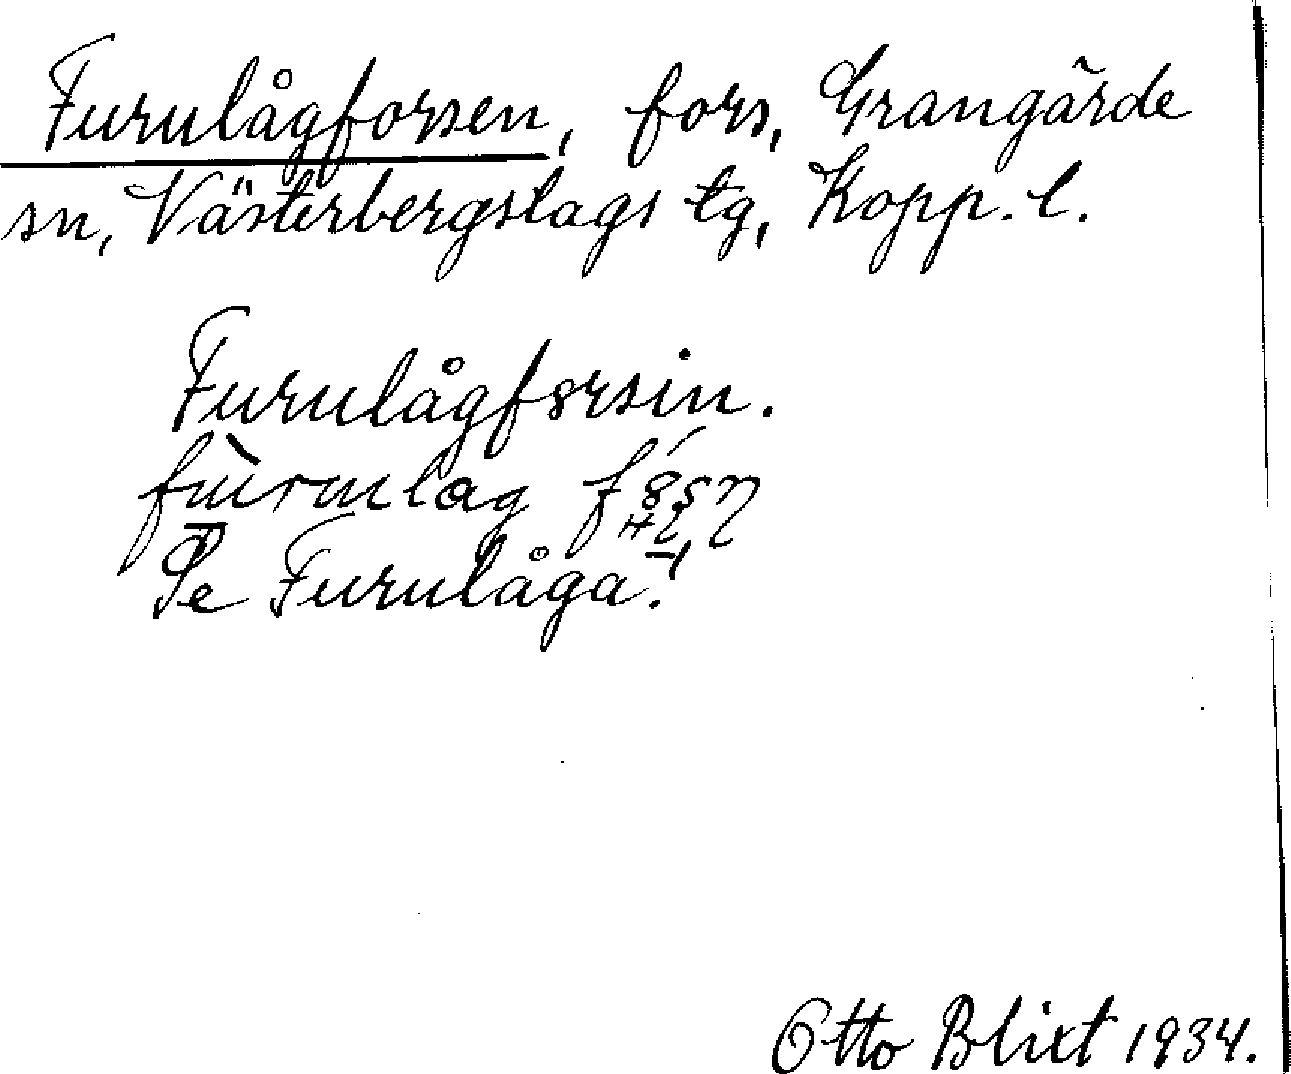 Furulågforsen, fors, Grangärde
sn, Västerbergslags tg, Kopp. l.
Furulågfȣrsin.
Se Furulåga!
Otto Blixt 1934.